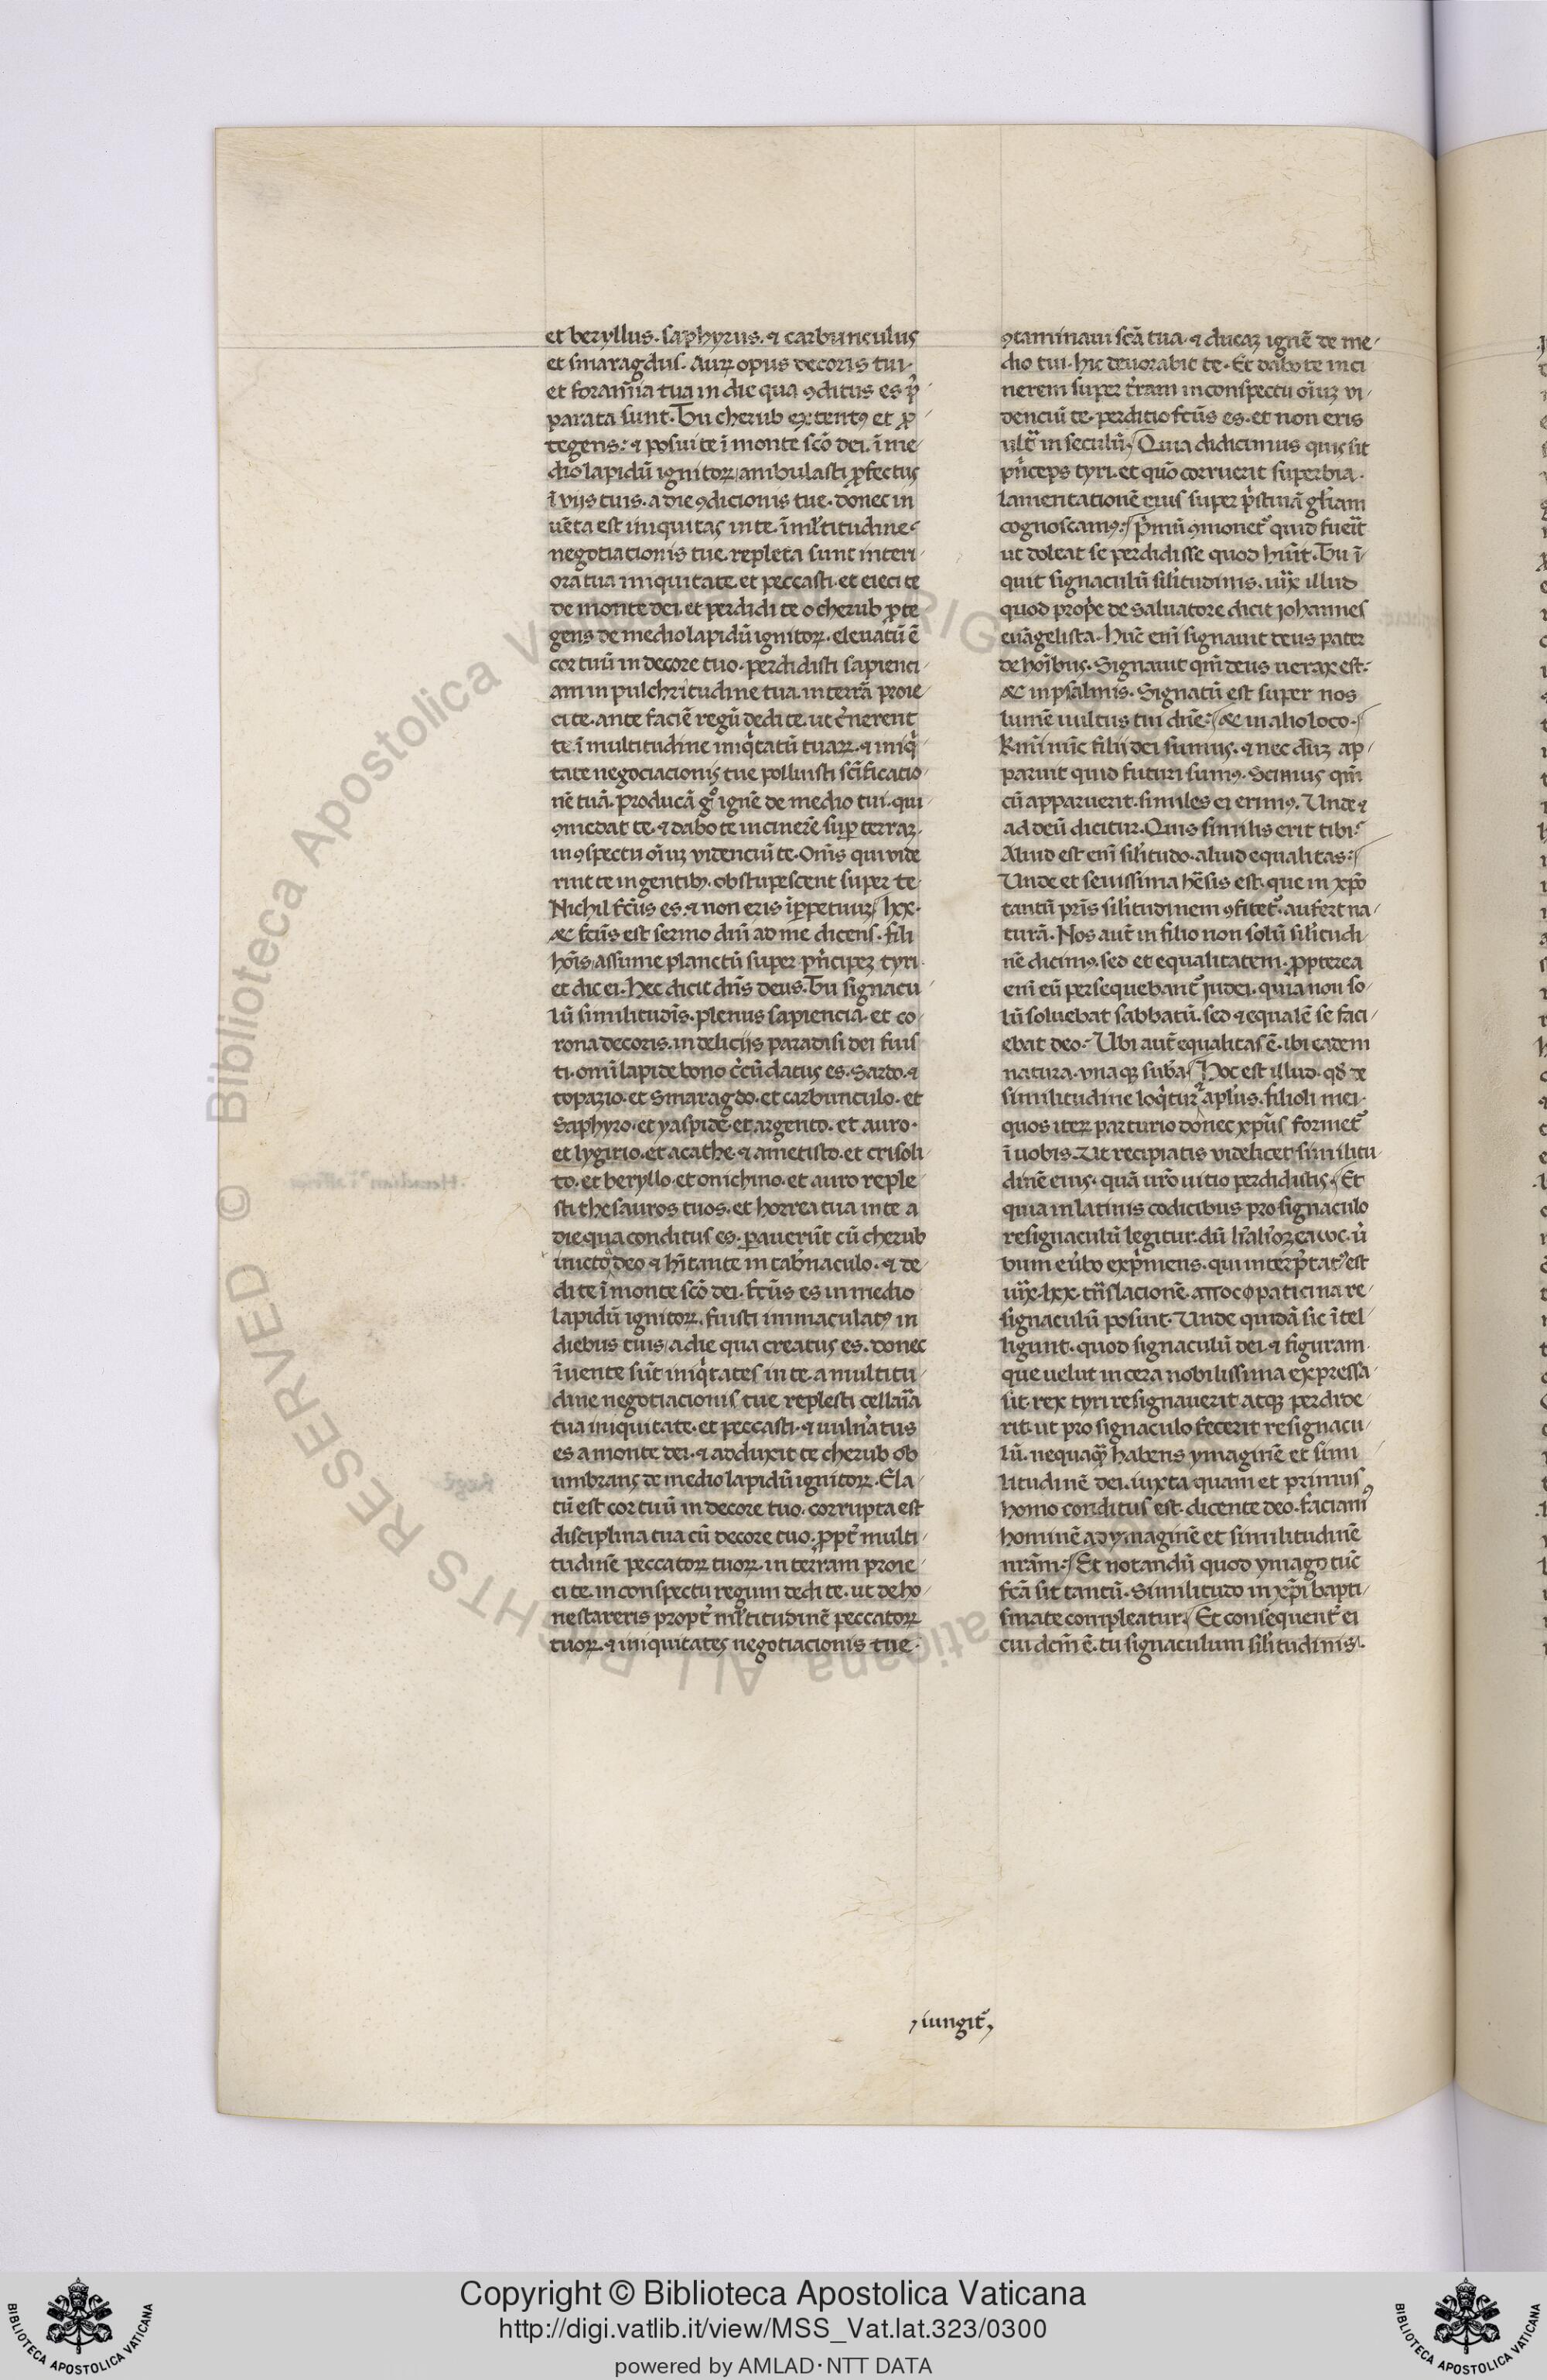 et beryllus. saphyrus. ⁊ carbunculus
et smaragdus. Auꝝ opus decoris tui.
et foramīa tua in die qua ꝯditus es p̄
parata sunt. Tu cherub extentꝰ et ꝓ
tegens: ⁊ posui te ī monte scō dei. ī me
dio lapidū ignitoꝝ ambulasti ꝑfectus
ī viis tuis. a die ꝯdicionis tue. donec in
uēta est iniquitas in te. ī ml̄titudine
negotiacionis tue. repleta sunt interi
ora tua iniquitate. et peccasti. et eieci te
de monte dei. et perdidi te o cherub ꝓte
gens de medio lapidū ignitoꝝ. eleuatū ē
cor tuū in decore tuo. perdidisti sapienci
am in pulchritudine tua. in terrā proie
ci te. ante faciē regū dedi te. ut c̄nerent
te. ī multitudine iniq̇tatū tuaꝝ. ⁊ iniq̇
tate negociacionis tue polluisti scīficatio
nē tuā. producā gͦ ignē de medio tui. qui
ꝯmedat te. ⁊ dabo te in cinerē suꝑ terraꝫ.
in ꝯspectu oīuꝫ videnciū te. Oms̄ qui vide
rint te in gentibꝫ. obstupescent super te.
Nichil fc̄us es. ⁊ non eris ī ꝑpetuuꝫ. lxx.
⁊c fc̄us est sermo dn̄i ad me dicens. fili
hoīs assume planctū super pn̄cipeꝫ tyri.
et dic ei. hec dicit dn̄s deus. Tu signacu
lū similitudīs. plenus sapiencia. et co
rona decoris. in deliciis paradisi dei fuis
ti. omī lapide bono c̄cūdatus es. Sardo. ⁊
topazio. et Smaragdo. et carbunculo. et
Saphyro. et yaspide. et argento. et auro.
et lygirio. et acathe. ⁊ ametisto. et crisoli
to. et beryllo. et onichino. et auro reple
sti thesauros tuos. et horrea tua in te a
die qua conditus es. ꝑauerūt cū cherub
uncto deo ⁊ hītante in tab̄naculo. ⁊ de
di te ī monte scō dei. fc̄us es in medio
lapidū ignitoꝝ. fuisti immaculatꝰ in
diebus tuis a die qua creatus es. donec
īuente sūt iniq̇tates in te. a multitu
dine negotiacionis tue replesti cellar̄ia
tua iniquitate. et peccasti. ⁊ uuln̄atus
es a monte dei. ⁊ adduxit te cherub ob
umbrans de medio lapidū ignitoꝝ. Ela
tū est cor tuū in decore tuo. corrupta est
disciplina tua cū decore tuo. ꝓpt̄ multi
tudinē peccatoꝝ tuoꝝ. in terram proie
ci te. in conspectu regum dedi te. ut deho
nestareris propt̄ ml̄titudinē peccatoꝝ
tuoꝝ. ⁊ iniquitates negotiacionis tue.
ꝯtaminaui scā tua. ⁊ ducaꝫ ignē de me
dio tui. hic deuorabit te. Et dabo te in ci
nerem super t̄ram in conspectu oīuꝫ vi
denciū te. perditio fc̄us es. et non eris
ult̄ in seculū. Quia didicimus quis sit
pn̄ceps tyri. et quō corruerit superbia.
lamentationē eius super pr̄stinā gl̄iam
cognoscamꝰ: Pͥmū ꝯmonet᷑ quid fuerit
ut doleat se perdidisse quod hūit. Tu ī
quit signaculū sil̄itudinis. iuxͣ illud
quod prop̄e de saluatore dicit johannes
euāgelista. Hūc em̄ signauit deus pater
de hoībus. Signauit qm̄ deus uerax est:
⁊c in psalmis. Signatū est super nos
lumē uultus tui dn̄e: ⁊c in alio loco.
Kmī nūc filii dei sumus. ⁊ nec dūꝫ ap
paruit quid futuri sumꝰ. Scimus qm̄
cū apparuerit. similes ei erimꝰ. Unde ⁊
ad deū dicitur. Quis similis erit tibi:
Aliud est em̄ sil̄itudo. aliud equalitas:
Unde et seuissima hēsis est. que in xp̄o
tantū pr̄is sil̄itudinem ꝯfitet᷑. aufert na
turā. Nos aut̄ in filio non solū sil̄itudi
nē dicimꝰ. sed et equalitatem. ꝓpterea
em̄ eū persequebant᷑ judei. quia non so
lū soluebat sabbatū. sed ⁊ equalē se faci
ebat deo. Ubi aut̄ equalitas ē. ibi eadem
natura. vnaqꝫ sub̄a. Hoc est illud. qd̄ de
similitudine loq̇tur apl̄us. filioli mei.
quos iteꝝ parturio donec xp̄us formet᷑
ī uobis. Ut recipiatis videlicet similitu
dinē eius. quā ur̄o uitio perdidistis. Et
quia in latinis codicibus pro signaculo
resignaculū legitur. dū
bum e ūbo expͥmens. qui inter̄ptatꝰ est
iuxͣ. lxx. tn̄slacionē. in re
signaculū posuit. Unde quidā sic ītel
ligunt. quod signaculū dei. ⁊ figuram
que uelut in cera nobilissima expressa
sit. rex tyri resignauerit atqꝫ perdide
rit. ut pro signaculo fecerit resignacu
lū. nequaqͣ habens ymaginē et simi
litudinē dei. iuxta quam et primus
homo conditus est. dicente deo. faciamꝰ
hominē ad ymaginē et similitudinē
nr̄am: Et notandū quod ymago tūc
fc̄a sit tantū. Similitudo in xp̄i bapti
smate compleatur. Et consequent̄ ei
cui dc̄m ē. tu signaculum sil̄itudinis.
iungit᷑
Copyright © Biblioteca Apostolica Vaticana
http://digi.vatlib.it/view/MSS_Vat.lat.323/0300
powered by AMLAD·NTT DATA
BIBLIOTECA APOSTOLICA VATICANA
BIBLIOTECA APOSTOLICA VATICANA